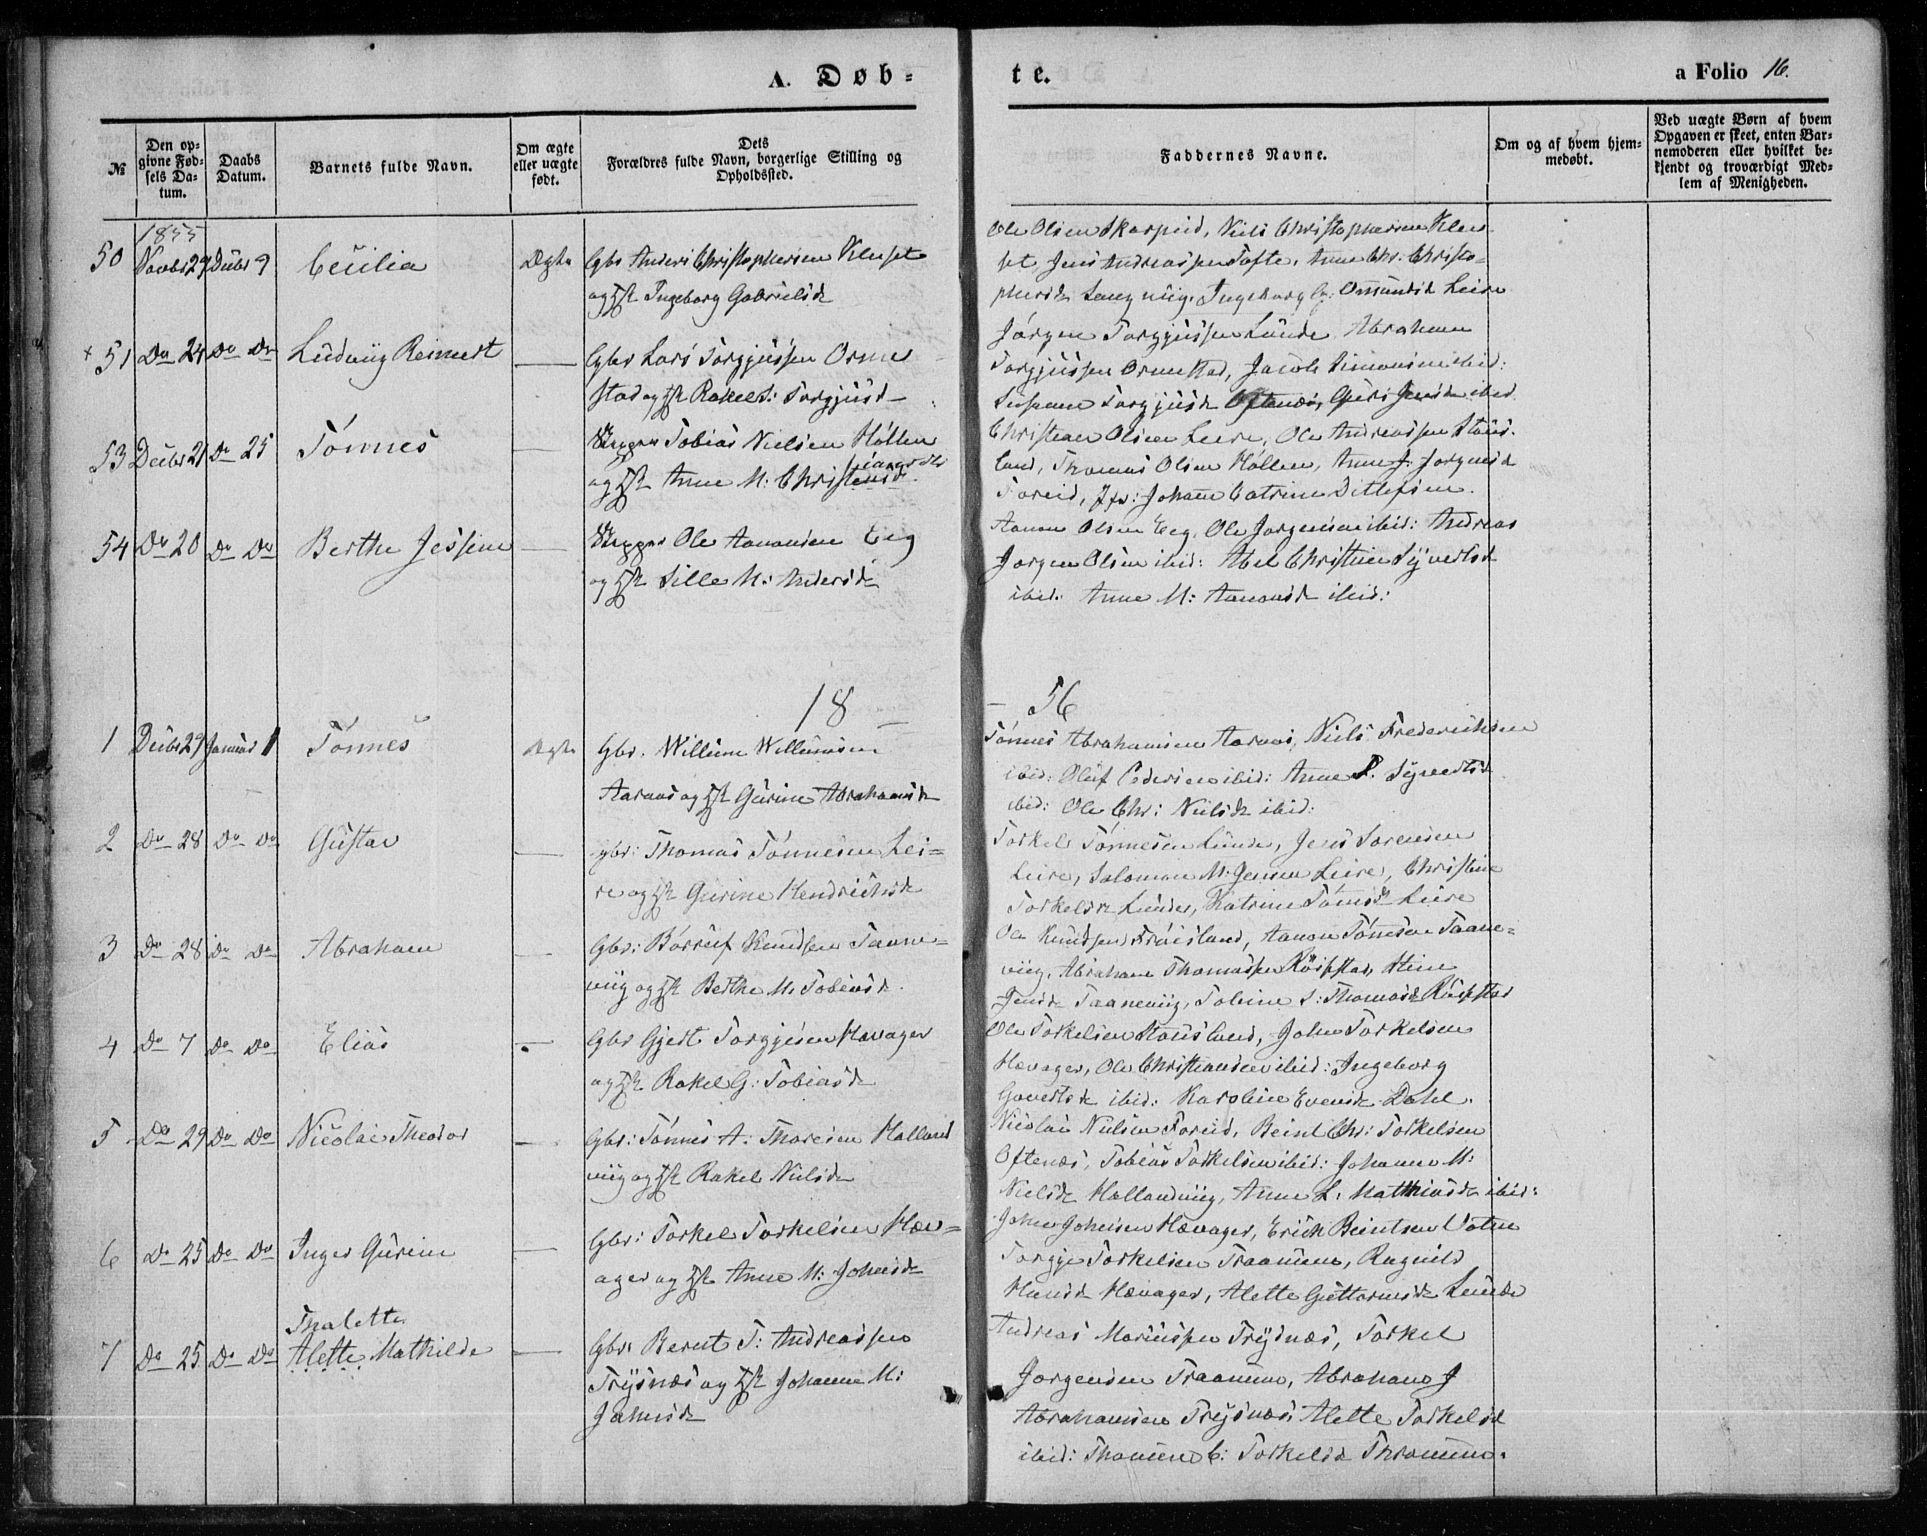 A. Døb-
te.
a Folio 16.
№
Den op-
givne Fød-
sels Da-
tum.
Daabs
Datum.
Barnets fulde Navn.
Om ægte
eller uægte
født.
Dets
Forældres fulde Navn, borgerlige Stilling og
Opholdssted.
Faddernes Navne.
Om og af hvem hjem-
medøbt.
Ved uægte Børn af hvem
Opgaven er skeet, enten Bar-
nemoderen eller hvilket be-
kjendt og troværdigt Med-
lem af Menigheden.
1855
50 Novbr 29 Decbr 9 Cecilia Ægte Gbr Anders Christophersen Kleuset
og Hst Ingeborg Gabrielsd
Ole Olsen Skarpeid, Niels Christophersen Kleu-
set, Jens Andreassen Tofte, Anne Chr. Christo-
phersd Langviig, Ingeborg G: Omundsd Leire
+ 51 Do 24 Do Do Ludviig Reinert — Gbr Lars Torgjussen Orme
stad og Hst Rakel S: Torgjusd
Jørgen Torgjussen Lunde, Abraham
Torgjussen Ormestad, Jacob Simonsen ibid:
Torgjusd Oftenæs, Guri Jensd ibid
53 Decbr 21 Do 25 Tønnes — Tobias Nielsen Høllen
og Hst Anne M: Christensd
Christian Olsen Leire, Ole Andreassen Staus-
land, Thomas Olsen Høllen, Anne J. Jørgensd
Foreid, Jfr: Johanne Catrine Ditlefsen.
54 Do 20 Do Do Berthe Jessine — Ole Aanonsen Eeg
og Hst Sille M: Andersd
Aanon Olsen Eeg, Ole Jørgensen ibid: Andreas
Jørgen Olsen ibid: Abel Christine Syvertsd
ibid. Anne M: Aanonsd ibid:
18 — 56
1 Decbr 29 Januar 1 Tønnes Ægte Gbr. Willum Willumsen
Aaraas og Hst Gurine Abrahamsd
Tønnes Abrahamsen Aaraas, Niels Frederichsen
ibid: Oluf Pedersen ibid: Anne P. Syvertsd
ibid: Ole Chr: Nielsd ibid:
2 Do 28 Do Do Gustav — gbr: Thomas Tønnesen Lei=
re og Hst Gurine Hendrichsd
Torkel Tønnesen Lunde, Jens Sørensen
Leire, Salomon M: Jensen Leire, Christine
Torkelsd Lunde, Katrine Tønnesd Leire
3 Do 28 Do Do Abraham — Gbr: Børruf Knudsen Taane=
viig og Hst Berthe M. Tobiasd.
Ole Knudsen Frøisland, Aanon Tønnesen Taane=
viig, Abraham Thomassen Røipstad, Stine
Jensd Taaneviig, Tobine S: Thomasd Røipstad
4 Do 7 Do Do Elias — Gbr Gjert Torgjesen Hævager
og Hst Rakel G: Tobiasd
Ole Torkelsen Stausland, John Torkelsen
Hævager, Ole Christiansen ibid: Ingeborg
Govertsd ibid: Karoline Evensd Dahl.
5 Do 29 Do Do Nicolai Theodor — Gbr: Tønnes A: Thoresen Halland
viig og Hst Rakel Nielsd
Nicolai Nielsen Foreid, Beint Chr: Torkelsen
Oftenæs, Tobias Torkelsen ibid: Johanne M:
Nielsd Hallandviig, Anne L. Matthiasd ibid:
6 Do 25 Do Do Inger Gurine — Gbr: Torkel Torkelsen Hæv=
ager og Hst Anne M: Johnsd
John Johnsen Hævager, Erick Beintsen Vatne
Torgje Torkelsen Traanum, Ragnild
Hansd Hævager, Alette Guttormsd Lunde
7 Do 25 Do Do Thalette
Alette Mathilde — Gbr: Berent T: Andreassen
Trysnæs og Hst Johanne M:
Johnsd
Andreas Mariussen Trysnæs, Torkel
Jørgensen Traanum, Abraham J
Abrahamsen Trysnæs, Alette Torkelsd
ibid: Thomine C: Torkelsd Thraanum.